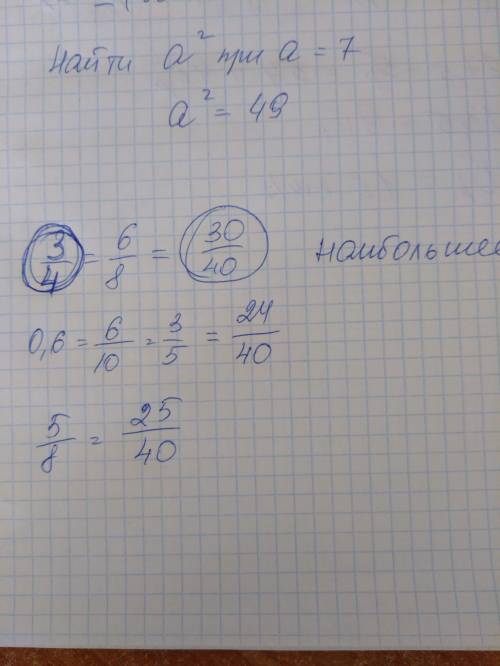 Найти a² при a = 7
a² = 49
3/4 = 6/8 = 30/40 наибольшее
0,6 = 6/10 = 3/5 = 24/40
5/8 = 25/40